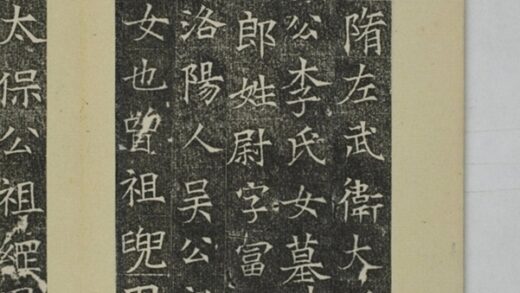 隋左武衛大
公李氏女墓
郎姓尉字富
洛陽人吳公
女也曾祖兜
太保公祖綱